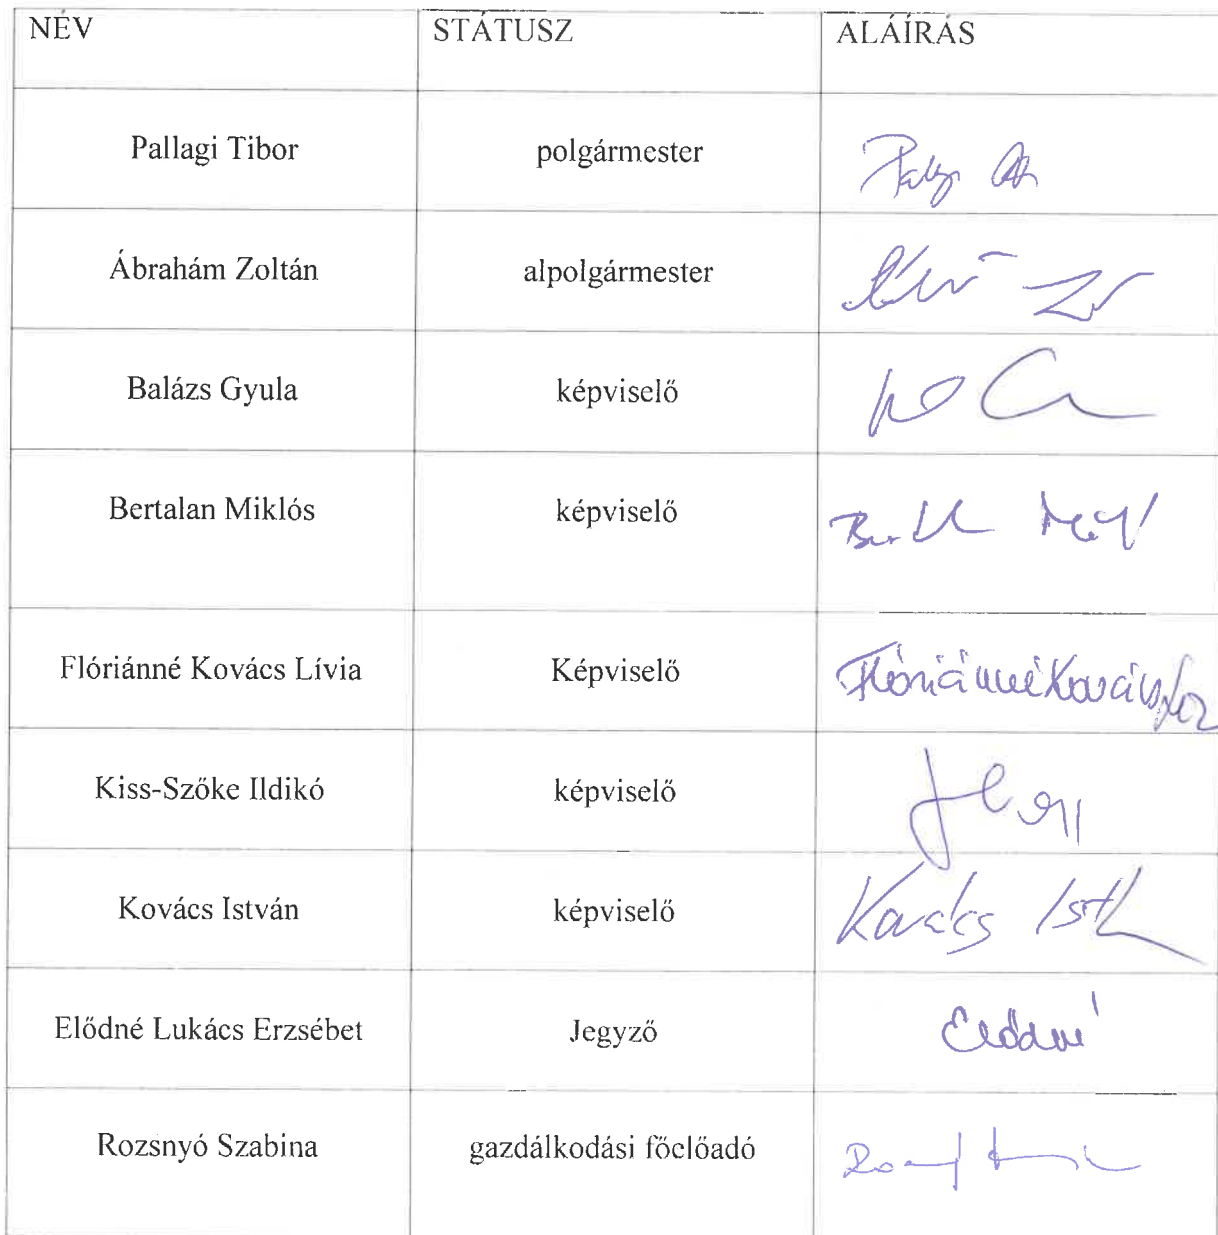 NÉV STÁTUSZ ALÁÍRÁS
Pallagi Tibor polgármester
Ábrahám Zoltán alpolgármester
Balázs Gyula képviselő
Bertalan Miklós képviselő
Flóriánné Kovács Lívia Képviselő Flóriánné Kovács
Kiss-Szőke Ildikó képviselő
Kovács István képviselő Kovács
Elődné Lukács Erzsébet Jegyző Elődné
Rozsnyó Szabina gazdálkodási főelőadó